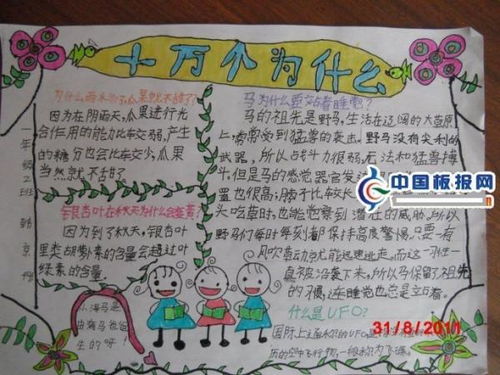 十万个为什么
一年级2班
韩京
为什么雨水多瓜果就不甜了?
因为在阴雨天,瓜果进行光
合作用的能力比较弱,产生
的糖分也会比较少,瓜果
当然就不甜了
银杏叶在秋天为什么会变黄?
因为到了秋天,银杏叶
里类胡萝卜素的含量会超过叶
绿素的含量.
海马是
由海马爸爸
生的呀!
马为什么要站着睡吧?
马的祖先是野马,生活在辽阔的大草原
上,常常会到猛兽的袭击.野马没有尖利的
武器,所以战斗力很弱,无法和猛兽搏
斗,但是马的感觉器官发
置也很高;脖子比较长
头吃草时,也能觉察到潜在的威胁,所以
野马们每时每刻都保持高度警惕只要一有
风吹草动马上能迅速逃走,而这一习性一
直被冷袭下来,所以马保留祖先
的习惯,连睡觉也总是站着.
什么是UFO?
国际上通称的UFO是
历的空中飞行物,一般称为飞碟.
中国板报网
31/8/2011